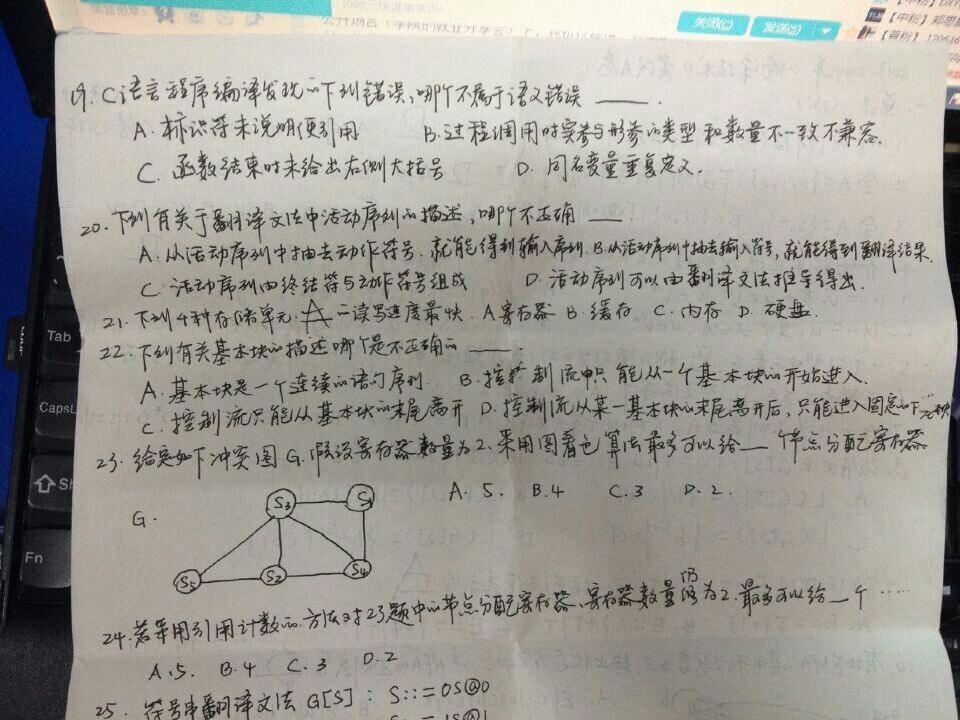 关闭(C) 发送(S)
19. C语言程序编译发现的下列错误,哪个不属于语义错误 ____.
A. 标识符未说明便引用 B. 过程调用时实参与形参的类型和数量不一致不兼容.
C. 函数结束时未给出右侧大括号 D. 同名变量重复定义.
20. 下列有关于翻译文法中活动序列的描述,哪个不正确 ____!
A. 从活动序列中抽去动作符号,就能得到输入序列. B. 从活动序列中抽去输入符号,就能得到翻译结果.
C. 活动序列由终结符与动作符号组成 D. 活动序列可以由翻译文法推导得出.
21. 下列4种存储单元: A 的读写速度最快. A 寄存器 B. 缓存 C. 内存 D. 硬盘.
22. 下列有关基本块的描述哪个是不正确的 ____.
A. 基本块是一个连续的语句序列. B. 控制流中只能从一个基本块的开始进入.
C. 控制流只能从基本块的末尾离开 D. 控制流从某一基本块的末尾离开后,只能进入固定的下
23. 给定如下冲突图G. 假设寄存器数量为2. 采用图着色算法最多可以给__个节点分配寄存器
A. 5. B. 4 C. 3 D. 2.
G.
S3 S1
S5 S2 S4
24. 若采用引用计数的方法对23题中的节点分配寄存器,寄存器数量仍为2. 最多可以给__个……
A. 5. B. 4 C. 3 D. 2
25. 符号串翻译文法 G[S] : S::= 0S@0
Tab
CapsL
Fn